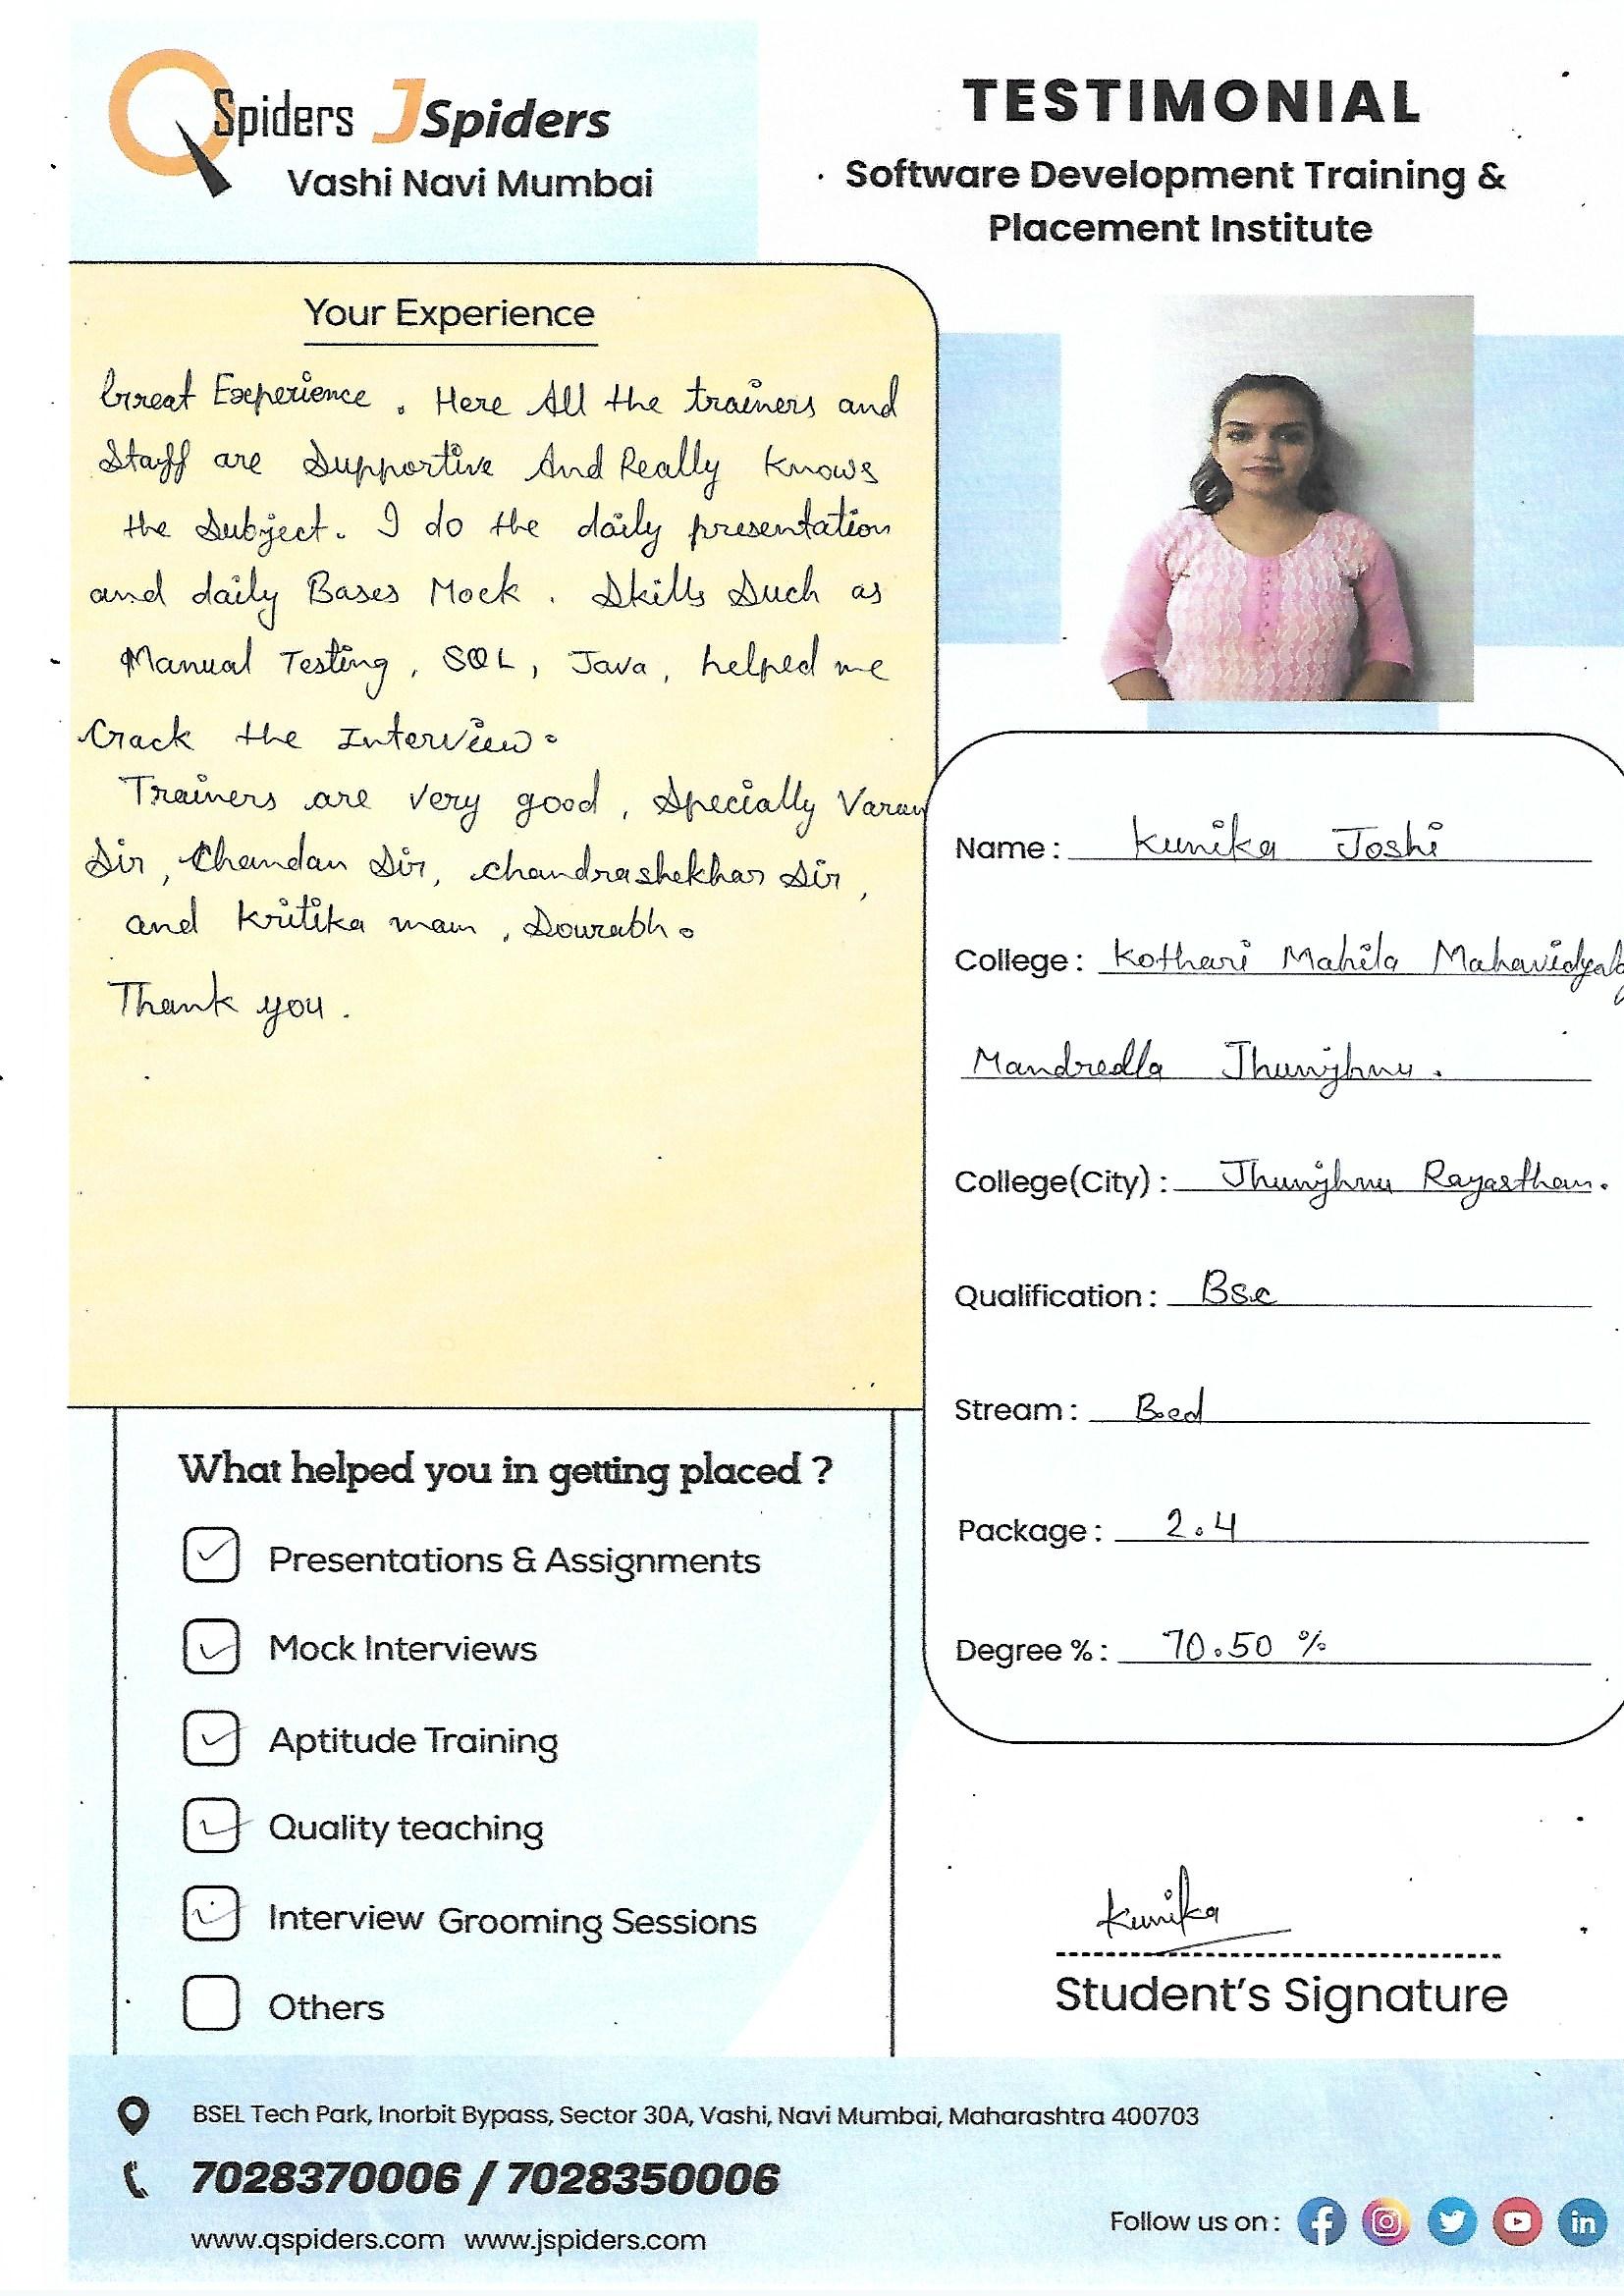 QSpiders JSpiders
Vashi Navi Mumbai
TESTIMONIAL
Software Development Training &
Placement Institute
Your Experience
Great Experience. Here All the trainers and
Staff are Supportive And Really Knows
the Subject. I do the daily presentation
and daily Bases Mock. Skills Such as
Manual Testing, SQL, Java, helped me
Crack the Interview.
Trainers are very good, Specially Varun
Sir, Chandan Sir, chandrashekhar Sir,
and Kritika mam, Sourabh.
Thank you.
Name: Kunika Joshi
College: Kothari Mahila
Mandrella Jhunjhnu.
College(City): Jhunjhnu Rajasthan.
Qualification: Bsc
Stream: B.ed
Package: 2.4
Degree %: 70.50 %
What helped you in getting placed ?
Presentations & Assignments
Mock Interviews
Aptitude Training
Quality teaching
Interview Grooming Sessions
Others
Kunika
Student's Signature
BSEL Tech Park, Inorbit Bypass, Sector 30A, Vashi, Navi Mumbai, Maharashtra 400703
7028370006 / 7028350006
www.qspiders.com www.jspiders.com
Follow us on: